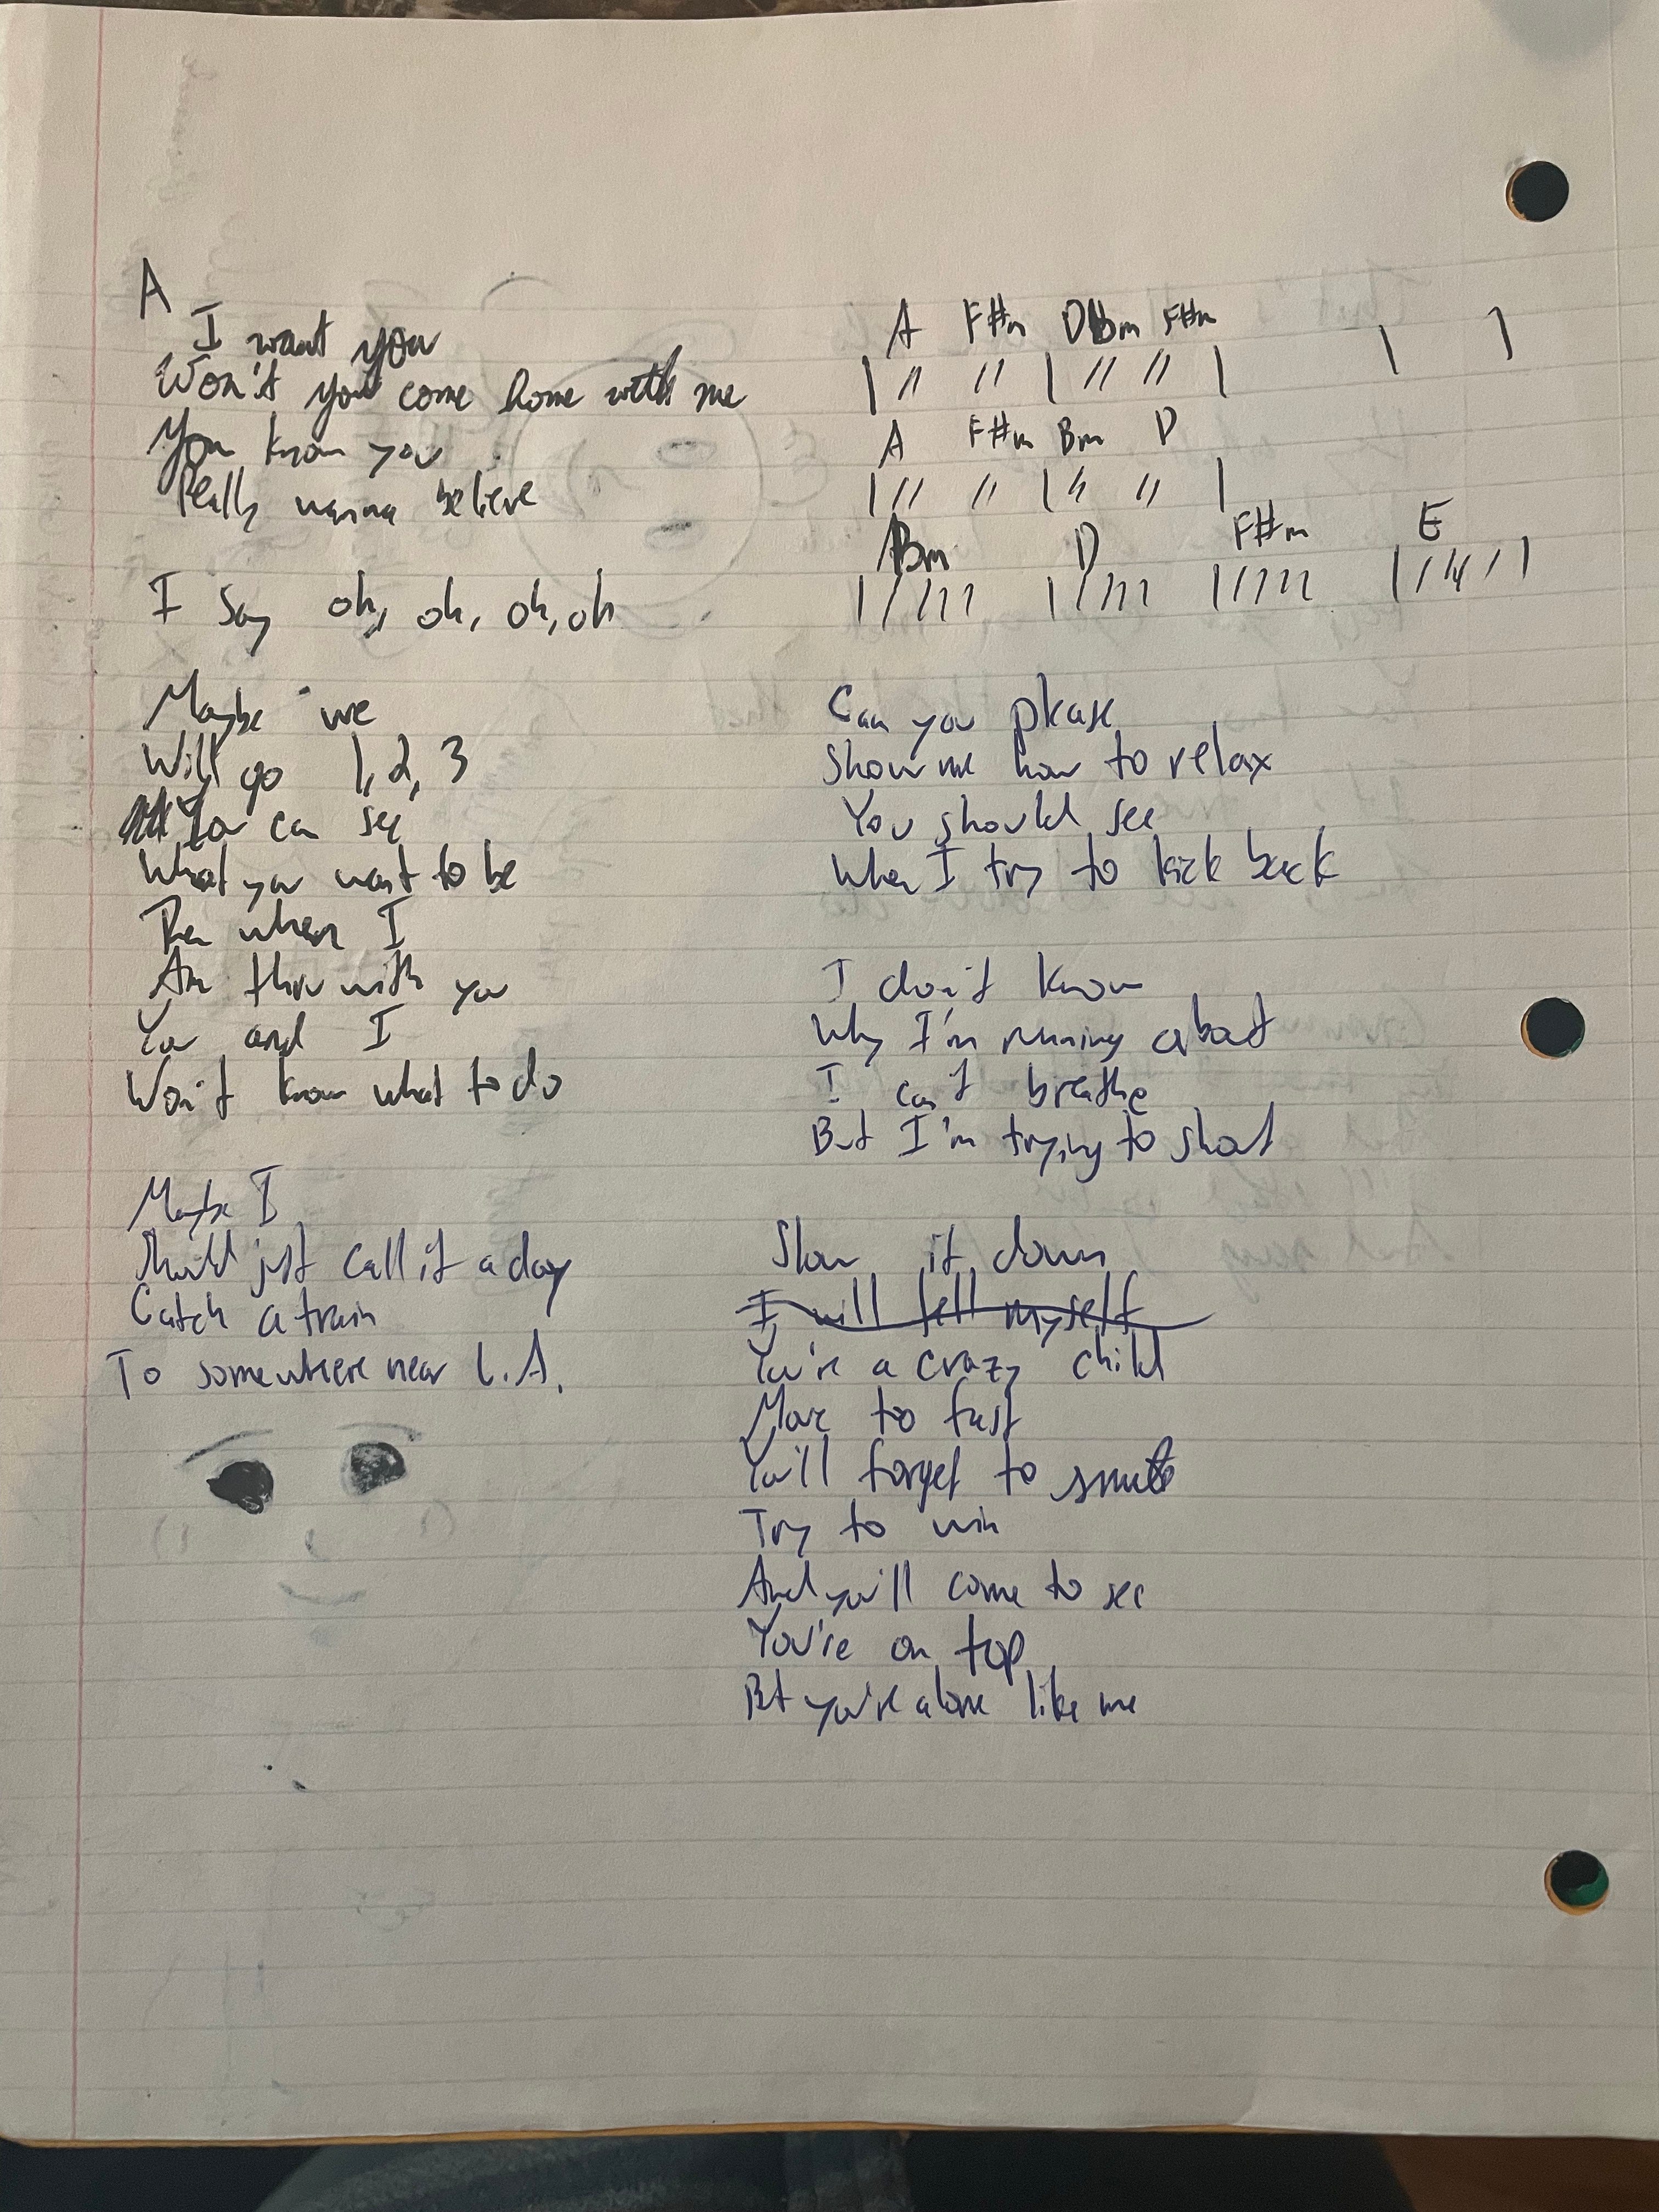 A
I want you
Won't you come home with me
You know you
Really wanna believe
I say oh, oh, oh, oh
Maybe we
Will go 1, 2, 3
You can see
What you want to be
Then when I
Am thru with you
You and I
Won't know what to do
Maybe I
Should just call it a day
Catch a train
To somewhere near L.A.
A F#m Bm F#m
| // // | // // | | |
A F#m Bm D
| // // | // // |
Bm D F#m E
| //// | //// | //// | //// |
Can you please
Show me how to relax
You should see
When I try to kick back
I don't know
Why I'm running about
I can't breathe
But I'm trying to shout
Slow it down
I will tell myself
You're a crazy child
Move to fast
You'll forget to smile
Try to win
And you'll come to see
You're on top
But you're alone like me